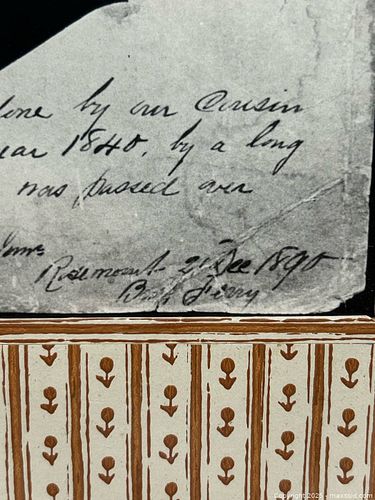 done by our Cousin
year 1840, by a long
was passed over
Rosemount 21 Dec 1890
Ferry
Copyright 2025 - maxxsis.com